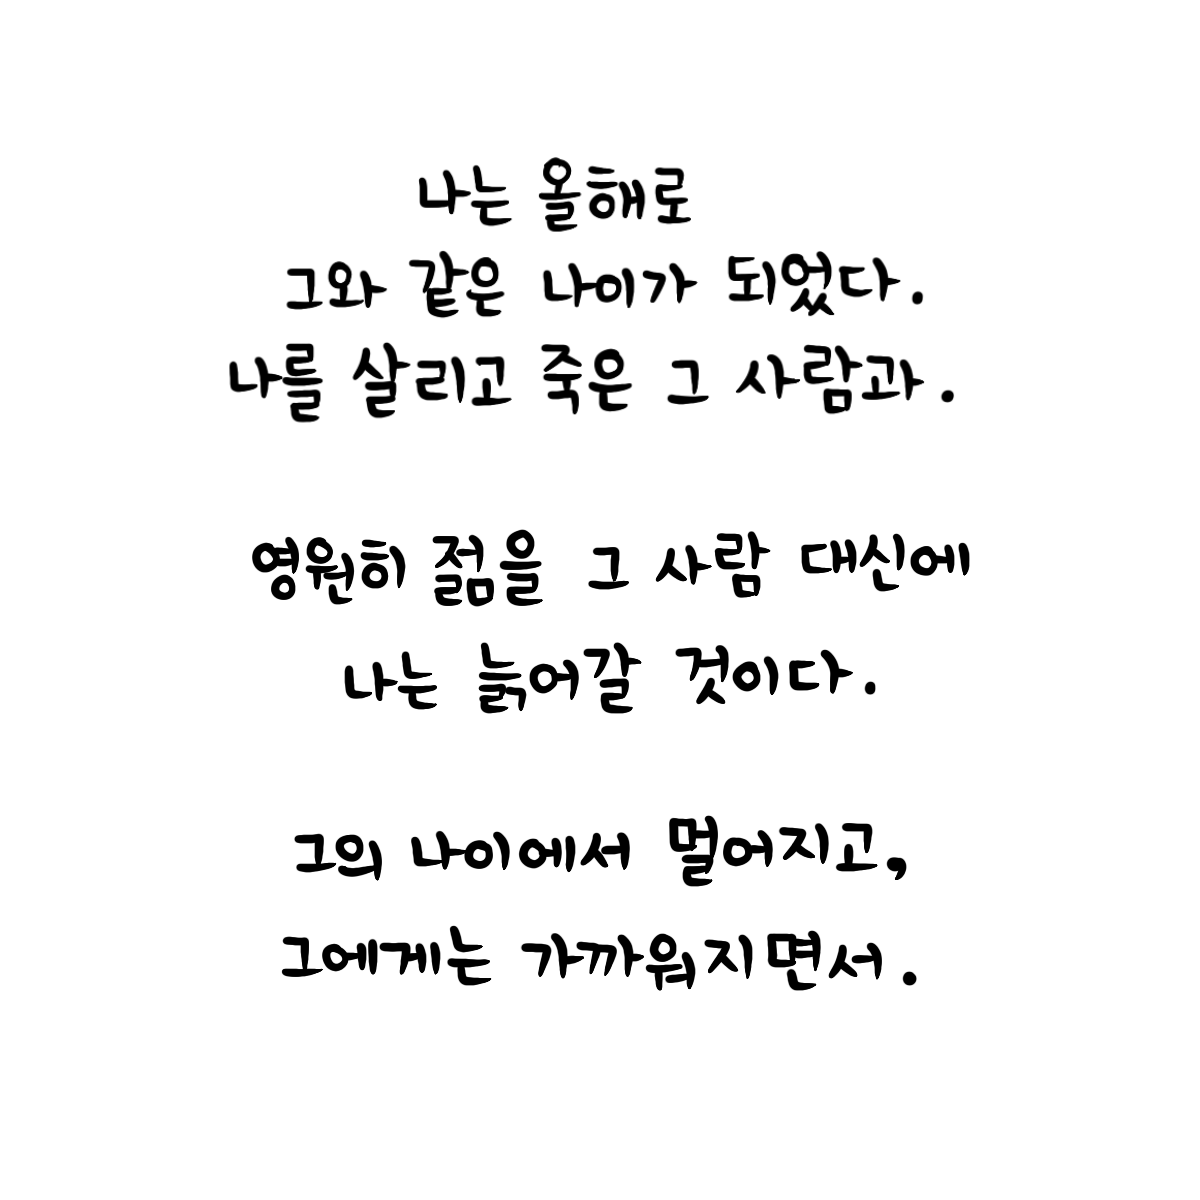 나는 올해로
그와 같은 나이가 되었다.
나를 살리고 죽은 그 사람과.
영원히 젊을 그 사람 대신에
나는 늙어갈 것이다.
그의 나이에서 멀어지고,
그에게는 가까워지면서.